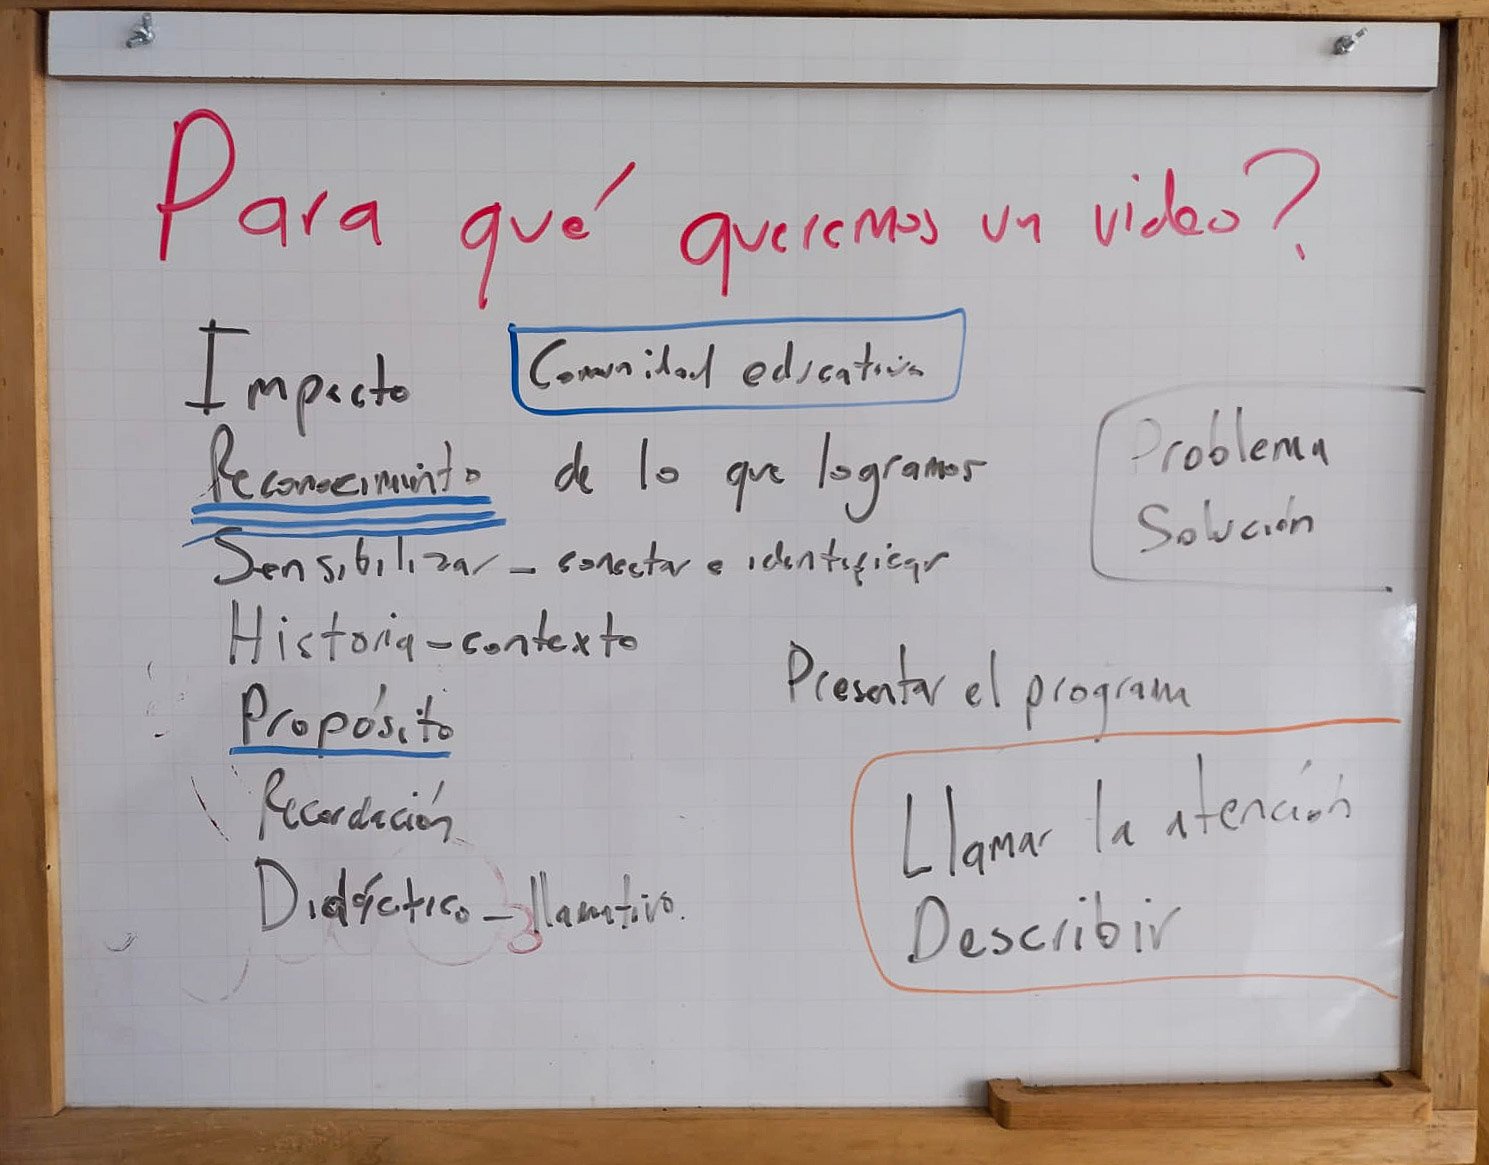 Para qué queremos un video?
Impacto
Comunidad educativa
Reconocimiento de lo que logramos
Sensibilizar - conectar e identificar
Historia - contexto
Propósito
Recordación
Didáctico - llamativo.
Problema
Solución
Presentar el programa
Llamar la atención
Describir